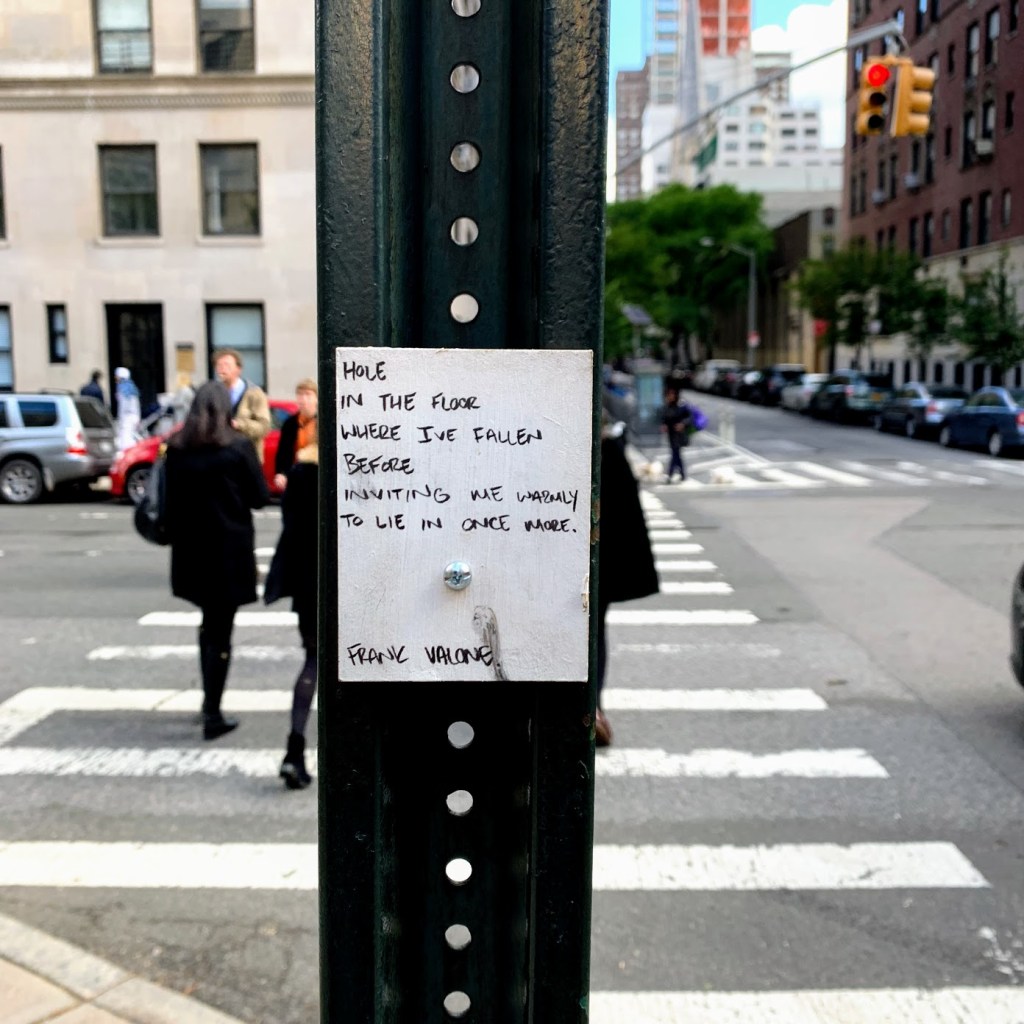 HOLE
IN THE FLOOR
WHERE I'VE FALLEN
BEFORE
INVITING ME WARMLY
TO LIE IN ONCE MORE.
FRANK VALONE